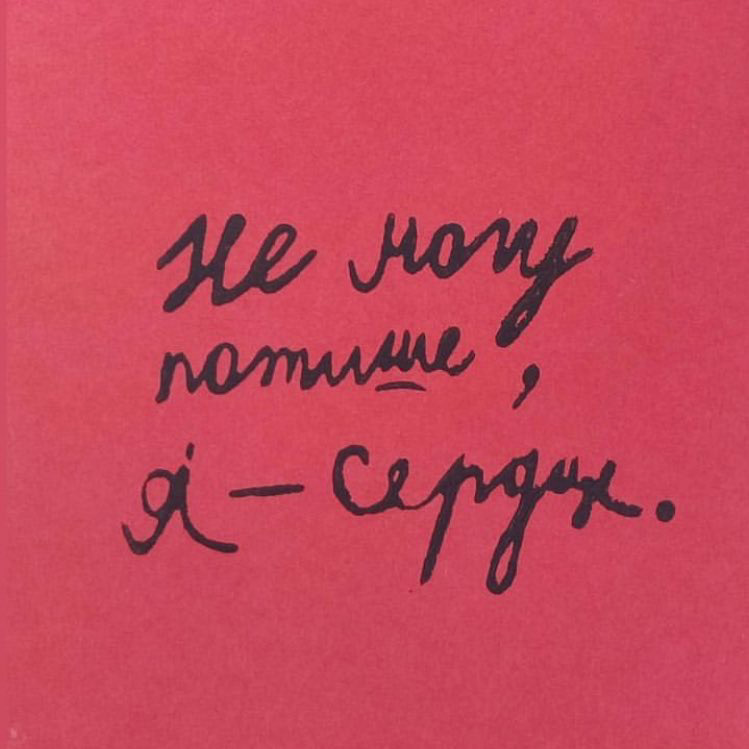 Не могу
потише,
Я – Сердце.